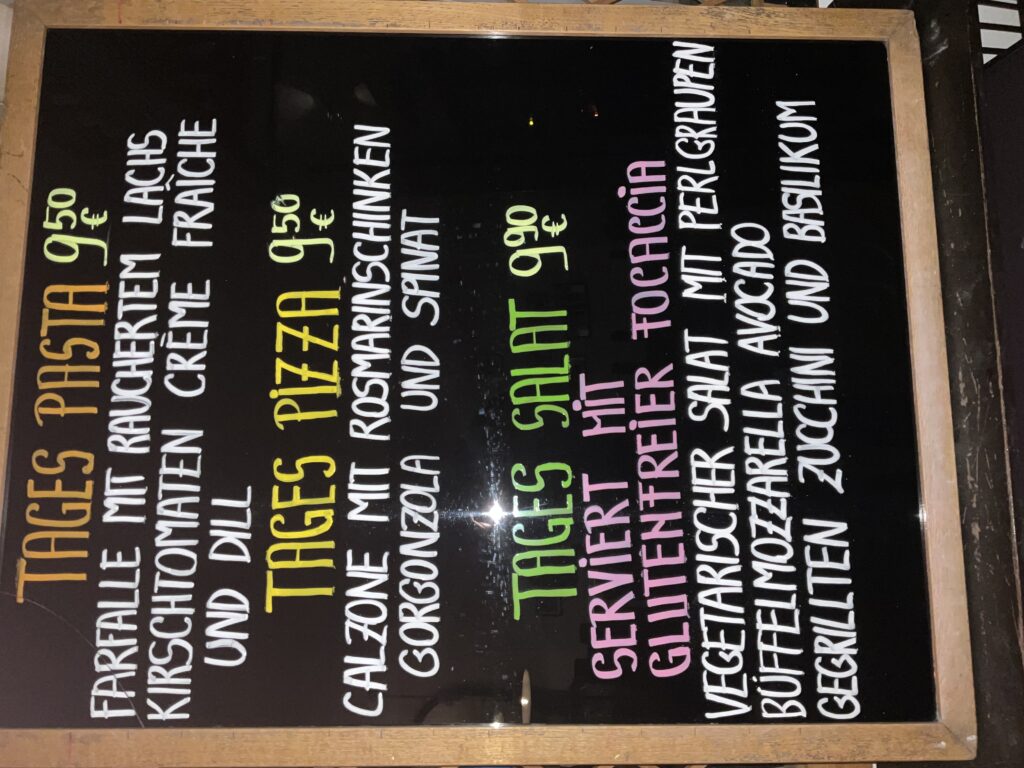 TAGES PASTA 9,50 €
FARFALLE MIT RAUCHERTEM LACHS
KIRSCHTOMATEN CRÈME FRAICHE
UND DILL
TAGES PIZZA 9,50 €
CALZONE MIT ROSMARINSCHINKEN
GORGONZOLA UND SPINAT
TAGES SALAT 9,90 €
SERVIERT MIT
GLUTENFREIER FOCACCIA
VEGETARISCHER SALAT MIT PERLGRAUPEN
BÜFFELMOZZARELLA AVOCADO
GEGRILLTEN ZUCCHINI UND BASILIKUM